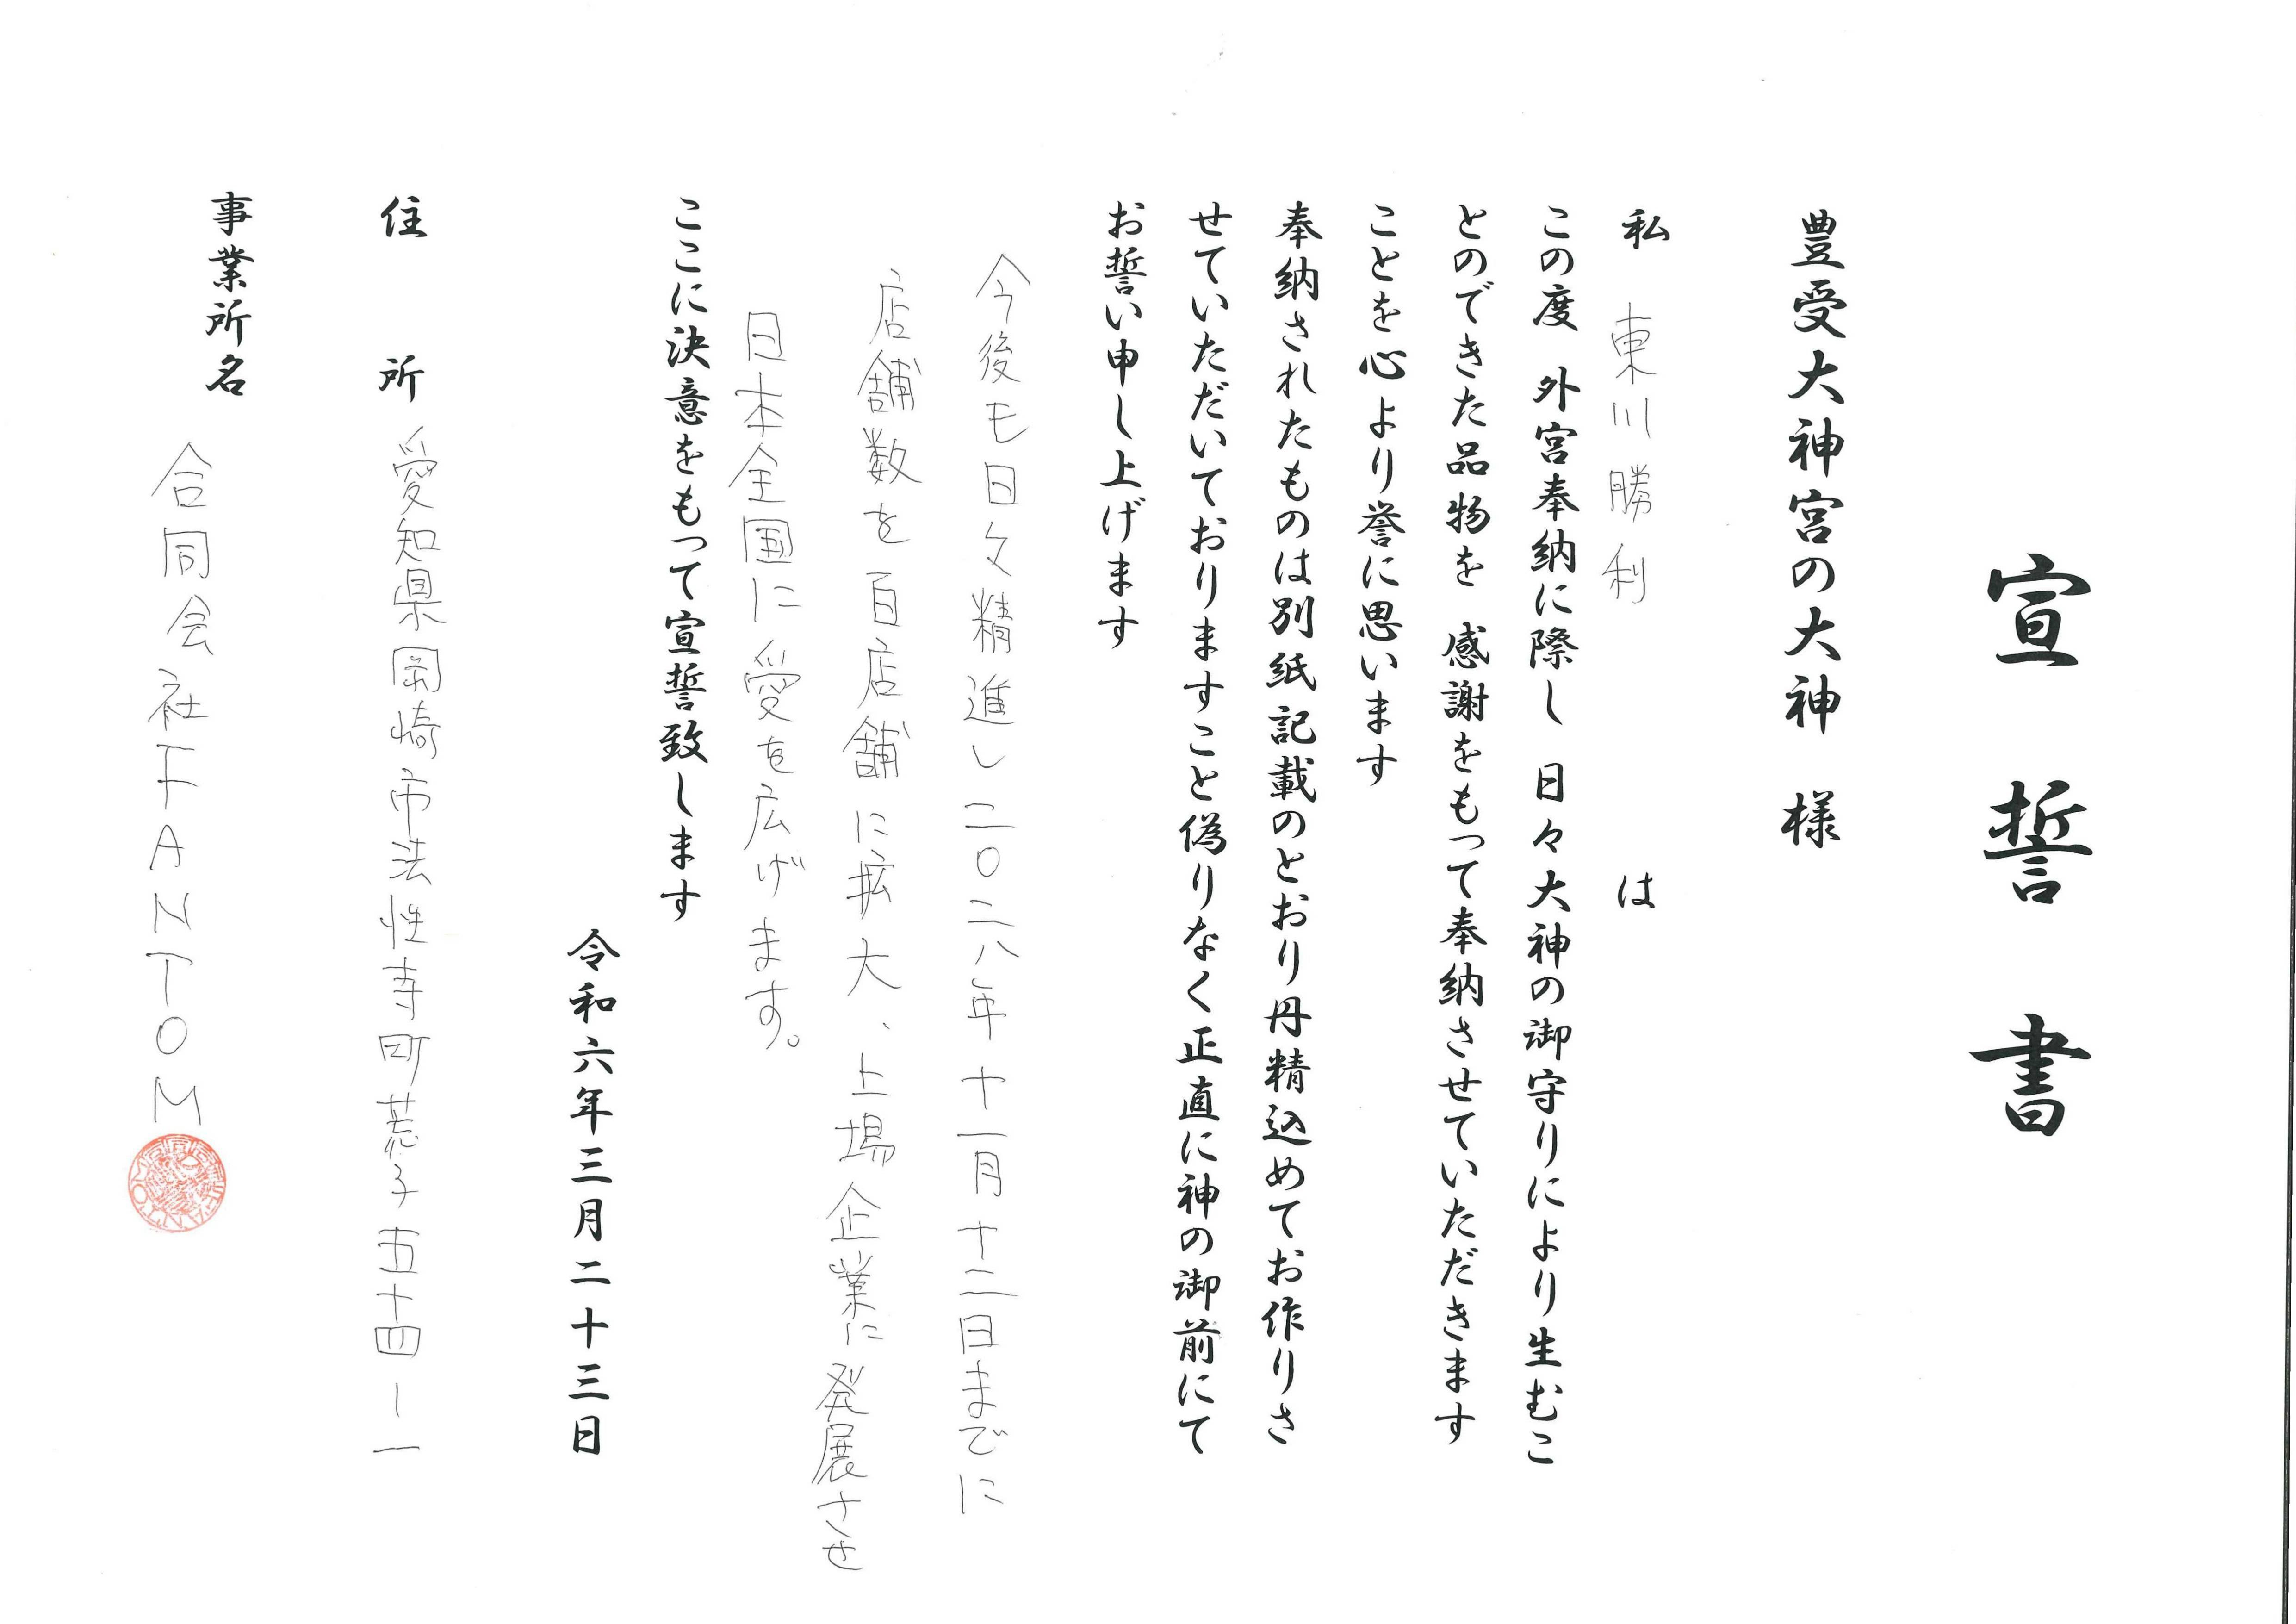 宣誓書
豊受大神宮の大神 様
私 東川勝利 は
この度 外宮奉納に際し 日々大神の御守りにより生むこ
とのできた品物を 感謝をもって奉納させていただきます
ことを心より誉に思います
奉納されたものは別紙記載のとおり丹精込めてお作りさ
せていただいておりますこと偽りなく正直に神の御前にて
お誓い申し上げます
今後も日々精進し二〇二八年十一月十二日までに
店舗数を百店舗に拡大、上場企業に発展させ
日本全国に愛を広げます。
ここに決意をもって宣誓致します
令和六年三月二十三日
住所 愛知県岡崎市法性寺町荒子五十四ー一
事業所名 合同会社FANTOM